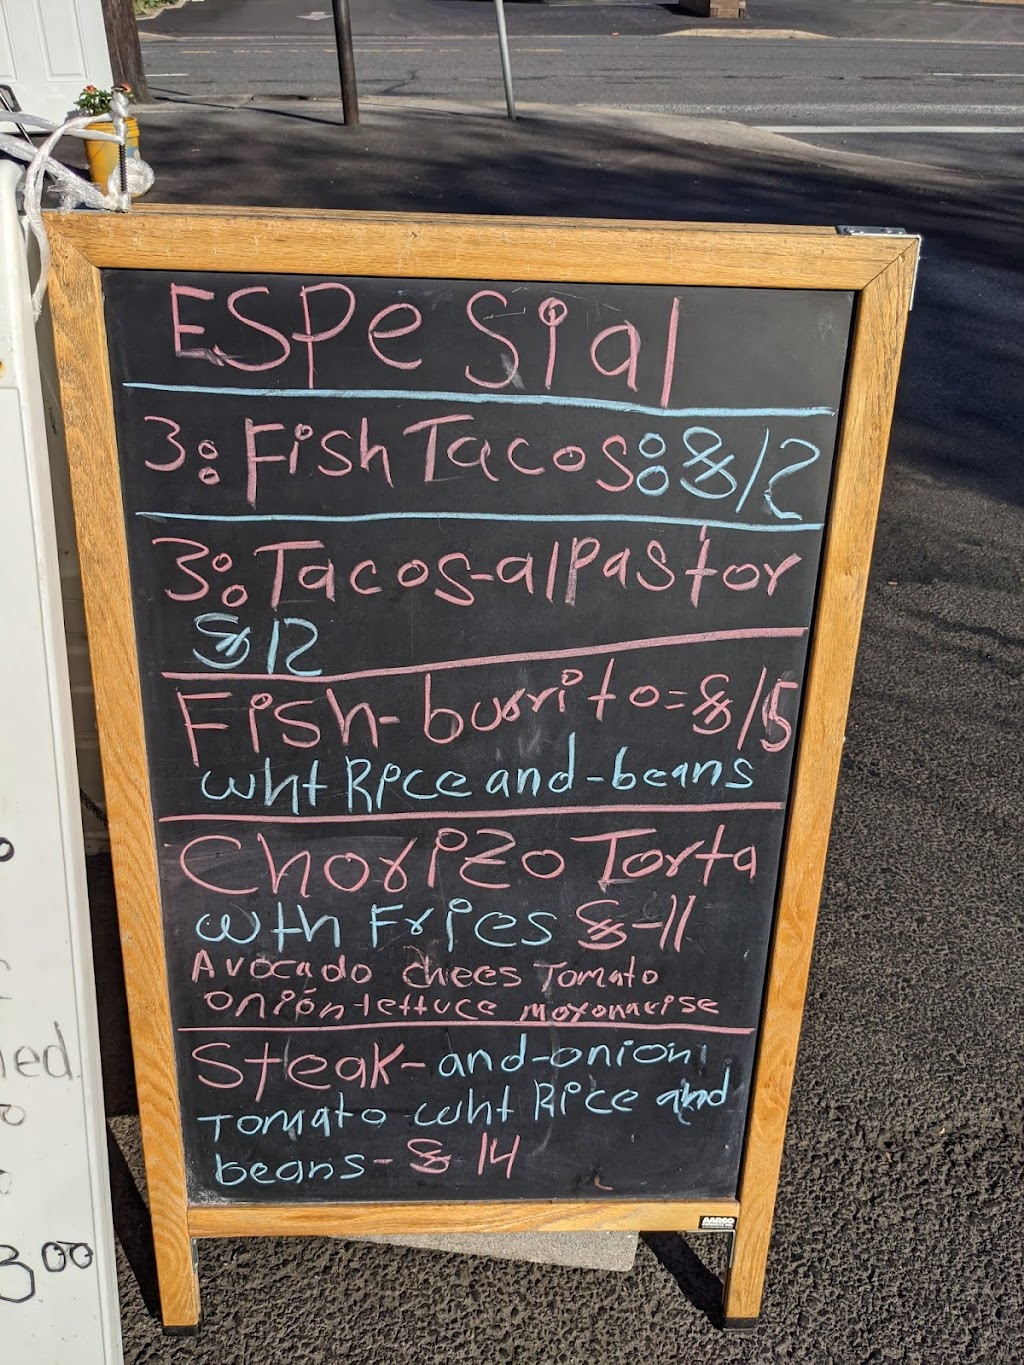 ESPeSial
3: Fish Tacos: $12
3: Tacos-alPastor
$12
Fish-burrito=$15
wht Rice and-beans
Chorizo Torta
wth Fries $-11
Avocado chees Tomato
onion-lettuce moyonneise
Steak-and-onion
Tomato wht Rice and
beans-$14
AARCO
led.
300